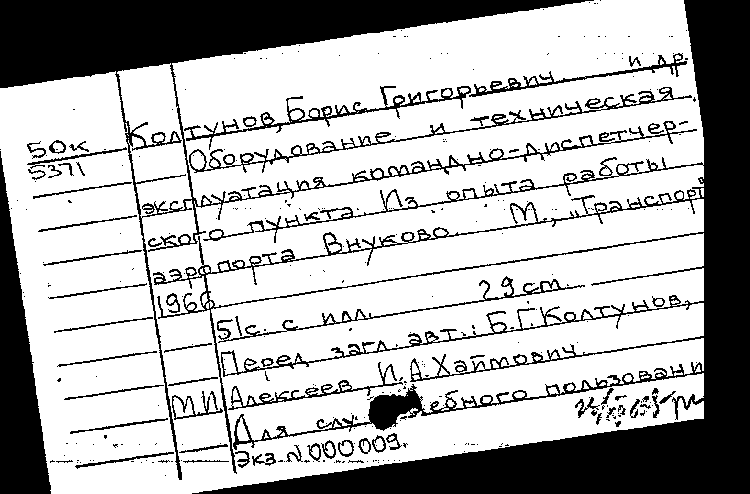 50к
5371
Колтунов, Борис Григорьевич и др.
Оборудование и техническая
эксплуатация командно-диспетчер-
ского пункта. Из опыта работы
аэропорта Внуково. М., „Транспорт"
1966
51с. с илл. 29 cm.
Перед загл. авт.: Б.Г. Колтунов,
М.И. Алексеев, И.А. Хаймович.
Для слу ебного пользовани
Экз. N 000009.